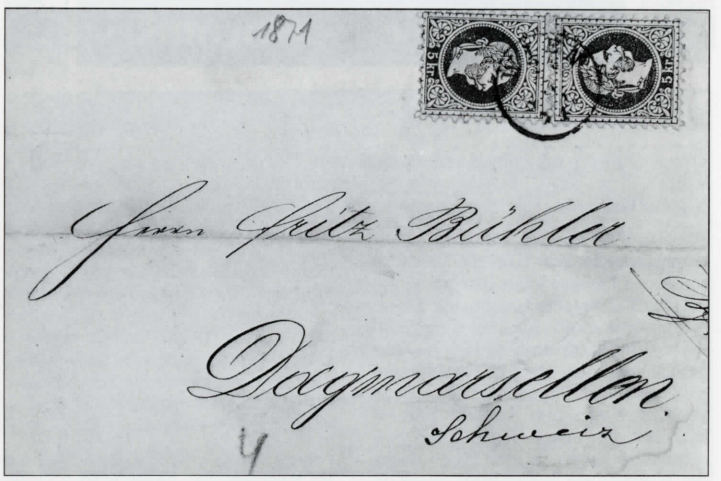 1871
5 kr. 5 kr.
Herrn Fritz Bühler
Dagmarsellen.
Schweiz
4